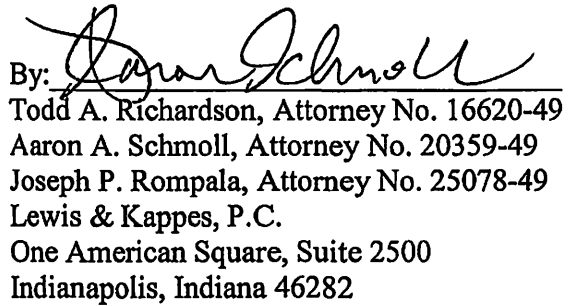 By: Aaron Schmoll
Todd A. Richardson, Attorney No. 16620-49
Aaron A. Schmoll, Attorney No. 20359-49
Joseph P. Rompala, Attorney No. 25078-49
Lewis & Kappes, P.C.
One American Square, Suite 2500
Indianapolis, Indiana 46282